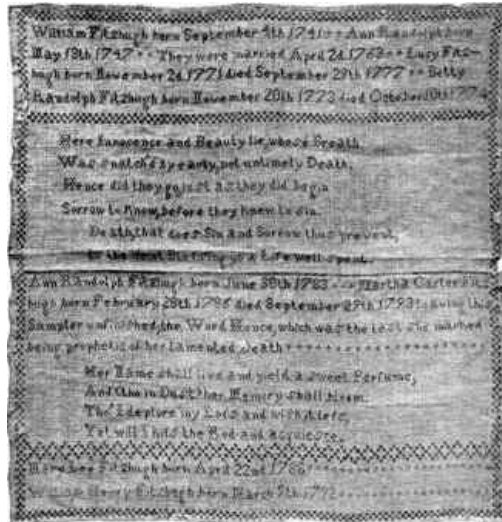 William Fitzhugh born September 4th 1741 Ann Randolph born
May 18th 1747 They were married April 2d 1763 Lucy Fitz-
hugh born November 2d 1771 died September 29th 1777 Betty
Randolph Fitzhugh born November 20th 1773 died October 10th 1774
Here Innocence and Beauty lie, whose Breath
Was snatch'd by early, yet untimely Death.
Hence did they go just as they did begin
Sorrow to know, before they knew to sin.
Death, that does Sin and Sorrow thus prevent,
Is the Next Blessing to a Life well spent.
Ann Randolph Fitzhugh born June 30th 1783 Martha Carter Fitz
hugh born February 28th 1786 died September 29th 1793 leaving this
Sampler unfinished, the Word Hence, which was the last she marked
being prophetic of her lamented death
Her Name shall live and yield a sweet Perfume,
And tho in Dust her Memory shall bloom.
Tho' I deplore my Loss and wish it less,
Yet will I kiss the Rod and acquiesce.
Lee Fitzhugh born April 22nd 1786
William Henry Fitzhugh born March 9th 1792